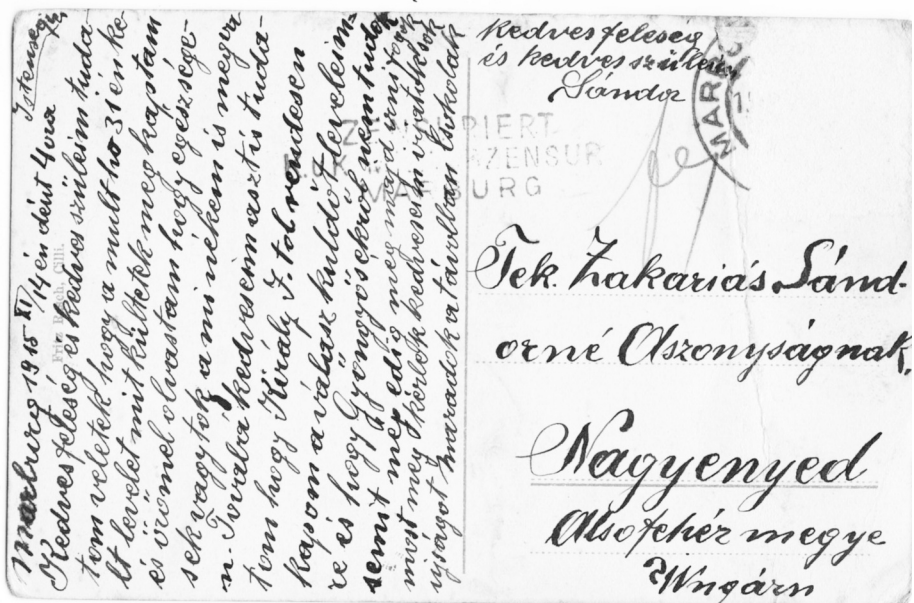 Marburg 1915 XI/14 én délut 4 ora
Kedves feleség és kedves szüleim tuda
tom veletek hogy a mult ho 31 én ke
lt levelet mit kültetek meg kaptam
és örömel olvastam hogy egézsége
sek vagytok a mi nékem is megva
n. Tovaba kedveseim asztis tuda
tom hogy Király J. tol rendesen
kapom a válasz küldöt leveleim
re és hogy Gyöngyösékröl nem tudok
semit mer edig még nem
most meg kérlek kedveseim
ujságot maradok a távolban Csokolak
Istenség
kedves feleség
és kedves szüleim
Sándor
ZENSURIERT
K.u.K. ZENSUR
MARBURG
MARB
Tek. Zakariás Sánd-
orné Aszonyságnak,
Nagyenyed
Alsofehér megye
Ungárn
Fritz Rasch, Cilli.